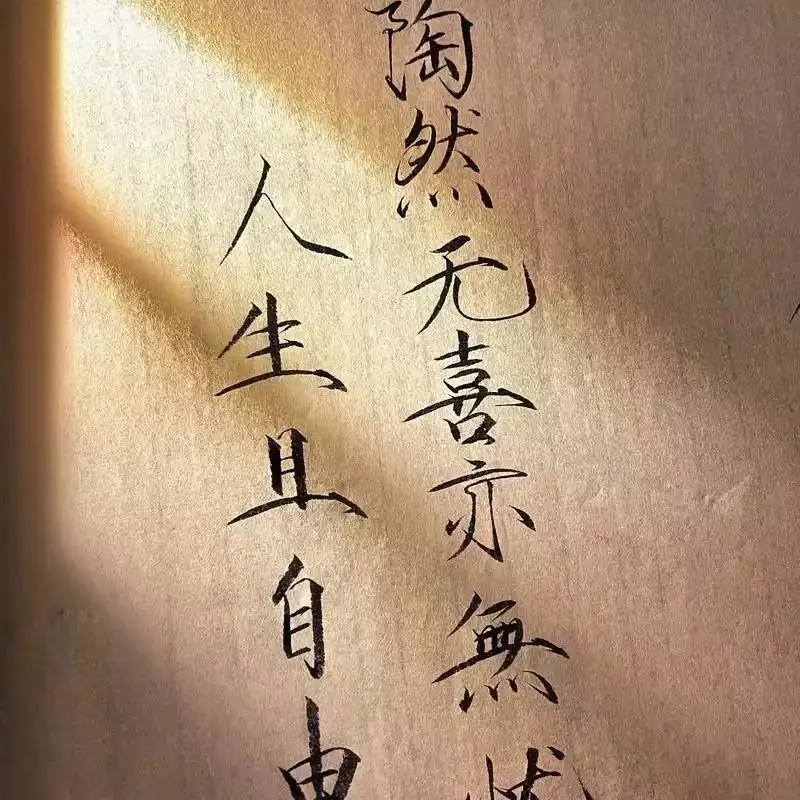 陶然无喜亦無忧
人生且自由